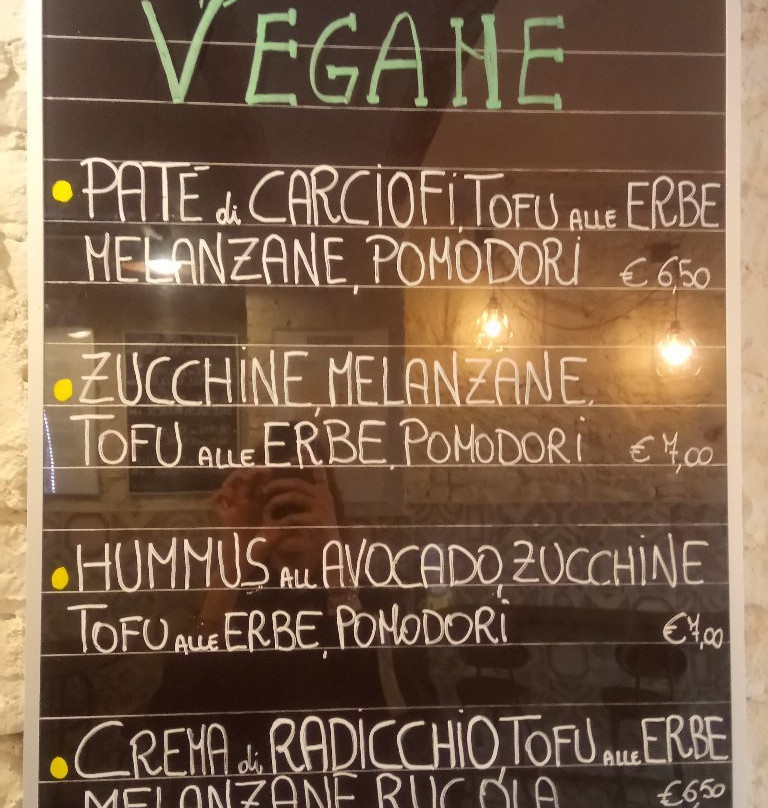 VEGANE
PATÉ di CARCIOFI, TOFU ALLE ERBE
MELANZANE, POMODORI € 6,50
ZUCCHINE, MELANZANE,
TOFU ALLE ERBE, POMODORI € 7,00
HUMMUS ALL AVOCADO, ZUCCHINE
TOFU ALLE ERBE, POMODORI €7,00
CREMA di RADICCHIO, TOFU ALLE ERBE
MELANZANE, RUCOLA €6,50